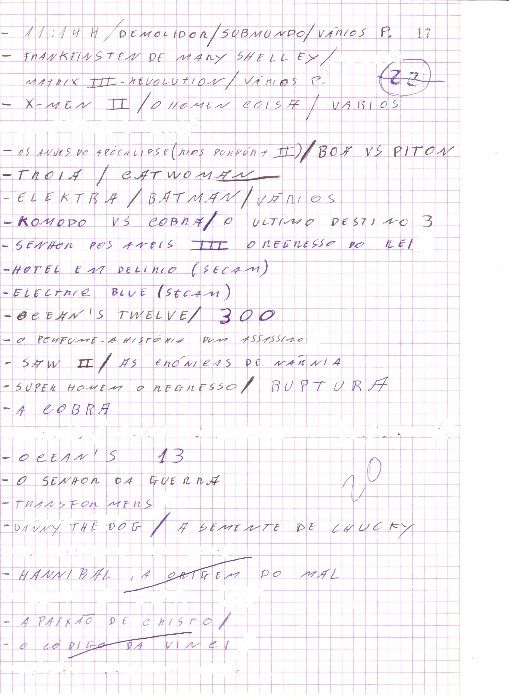 - 11:14 H / DEMOLIDOR / SUBMUNDO / VÁRIOS P. 17
- FRANKEINSTEN DE MARY SHELLEY /
MATRIX III - REVOLUTION / VÁRIOS P.
22
- X-MEN II / O HOMEN COISA / VARIOS
- OS ANJOS DO APOCALIPSE (RIOS PÚRPURA II) / BOA VS PITON
- TROIA / CATWOMAN
- ELEKTRA / BATMAN / VÁRIOS
- KOMODO VS COBRA / O ULTIMO DESTINO 3
- SENHOR DOS ANEIS III O REGRESSO DO REI
- HOTEL EM DELIRIO (SECAM)
- ELECTRIC BLUE (SECAM)
- OCEAN'S TWELVE / 300
- O PERFUME - A HISTÓRIA DUM ASSASSINO
- SAW II / AS CRÓNICAS DE NÁRNIA
- SUPER HOMEM O REGRESSO / RUPTURA
- A COBRA
- OCEAN'S 13
- O SENHOR DA GUERRA
20
- TRANSFORMERS
- DANNY THE DOG / A SEMENTE DE CHUCKY
- HANNIBAL, A ORIGEM DO MAL
- A PAIXÃO DE CRISTO /
- O CÓDIGO DA VINCI